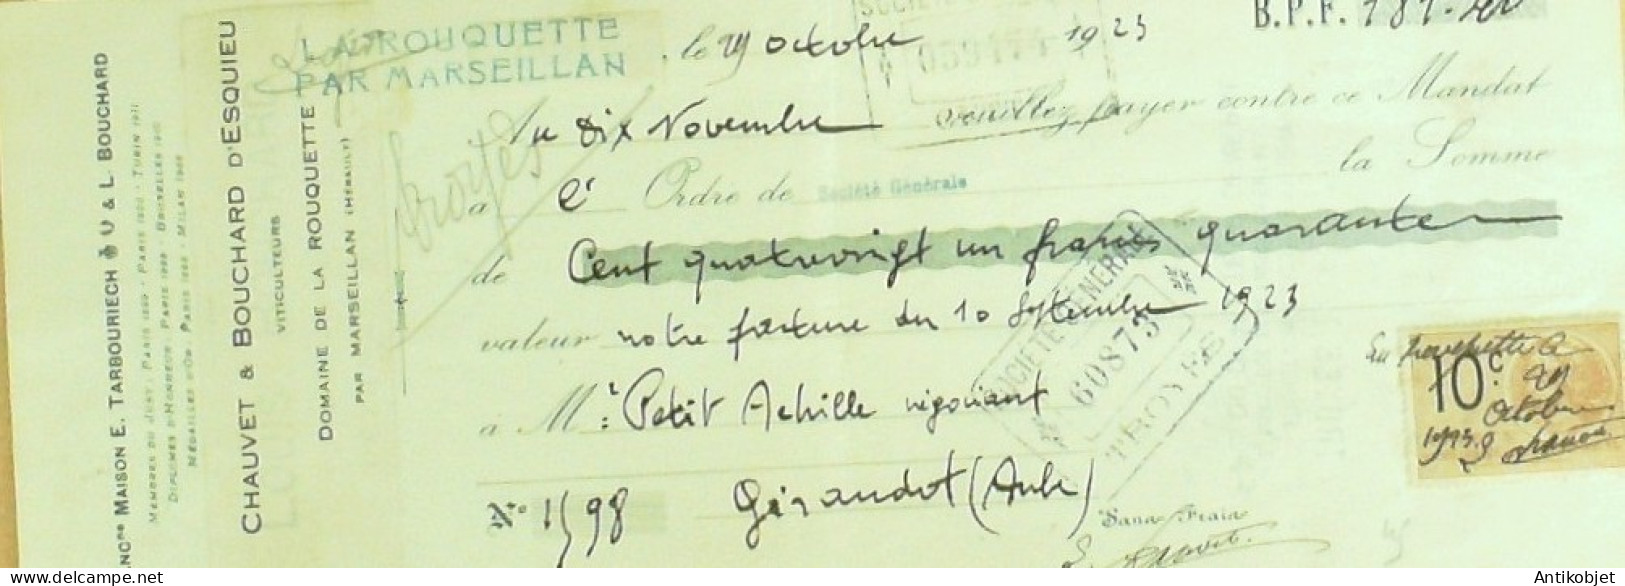 ANCⁿᵉ MAISON E. TARBOURIECH U & L. BOUCHARD
MEMBRES DU JURY: PARIS 1899 - PARIS 1900 - TURIN 1911
DIPLOMES D'HONNEUR: PARIS - BRUXELLES 1910
MÉDAILLES D'OR: PARIS - MILAN 1906
CHAUVET & BOUCHARD D'ESQUIEU
VITICULTEURS
DOMAINE DE LA ROUQUETTE
PAR MARSEILLAN (HÉRAULT)
LA ROUQUETTE
PAR MARSEILLAN
, le 29 octobre 1923
B.P.F. 181.40
Troyes
Au dix Novembre veuillez payer contre ce Mandat
à l' Ordre de Société Générale la Somme
de Cent quatrevingt un francs quarante
valeur notre facture du 10 Septembre 1923
à Mr Petit Achille négociant
Girandot (Aube)
No 1598
Sans Frais
SOCIÉTÉ GÉNÉRALE
60873
TROYES
059474
10c.
29
Octobre
1923
Antikobjet